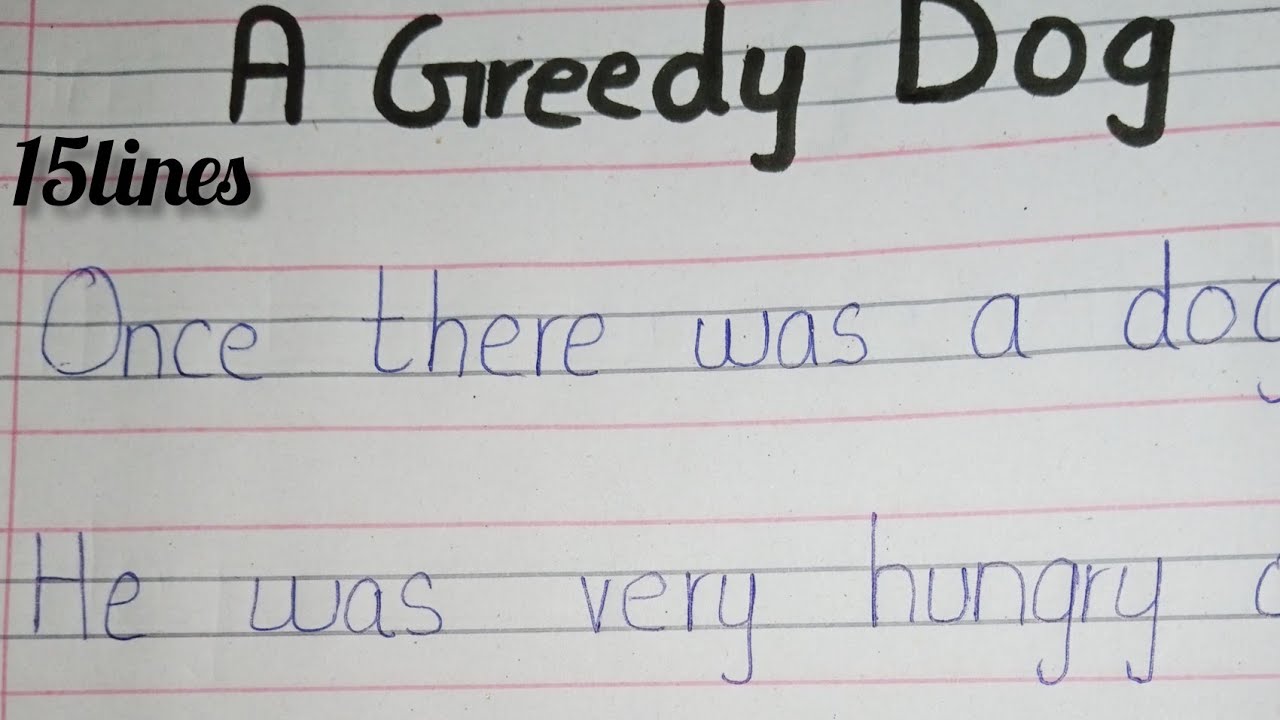 A Greedy Dog
15lines
Once there was a dog
He was very hungry